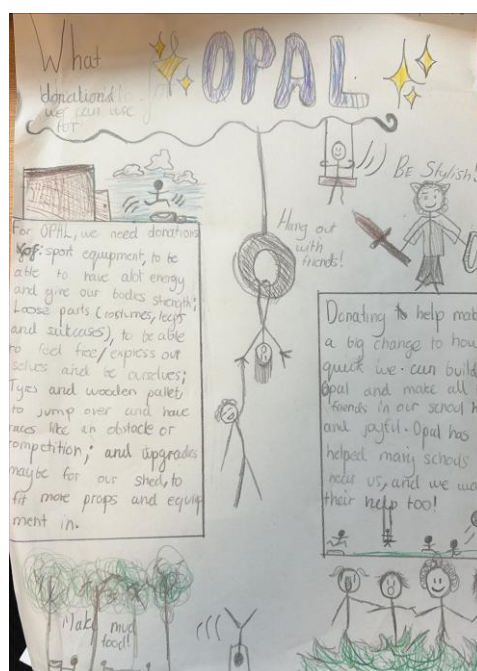 What
OPAL
donations
we can use
for
BE Stylish!
Hang out
with
friends!
For OPAL, we need donations
of: sport equipment, to be
able to have alot energy
and give our bodies strength;
Loose parts (costumes,
and suitcases), to be able
to feel free/express our
selves and be ourselves;
Tyres and wooden pallet
to jump over and have
races like an obstacle or
competition; and upgrades
maybe for our shed, to
fit more props and equip
ment in.
Donating to help mak
a big change to how
quick we can build
Opal and make all
friends in our school h
and joyful. Opal has
helped many schools
near us, and we wa
their help too!
Make mud
food!